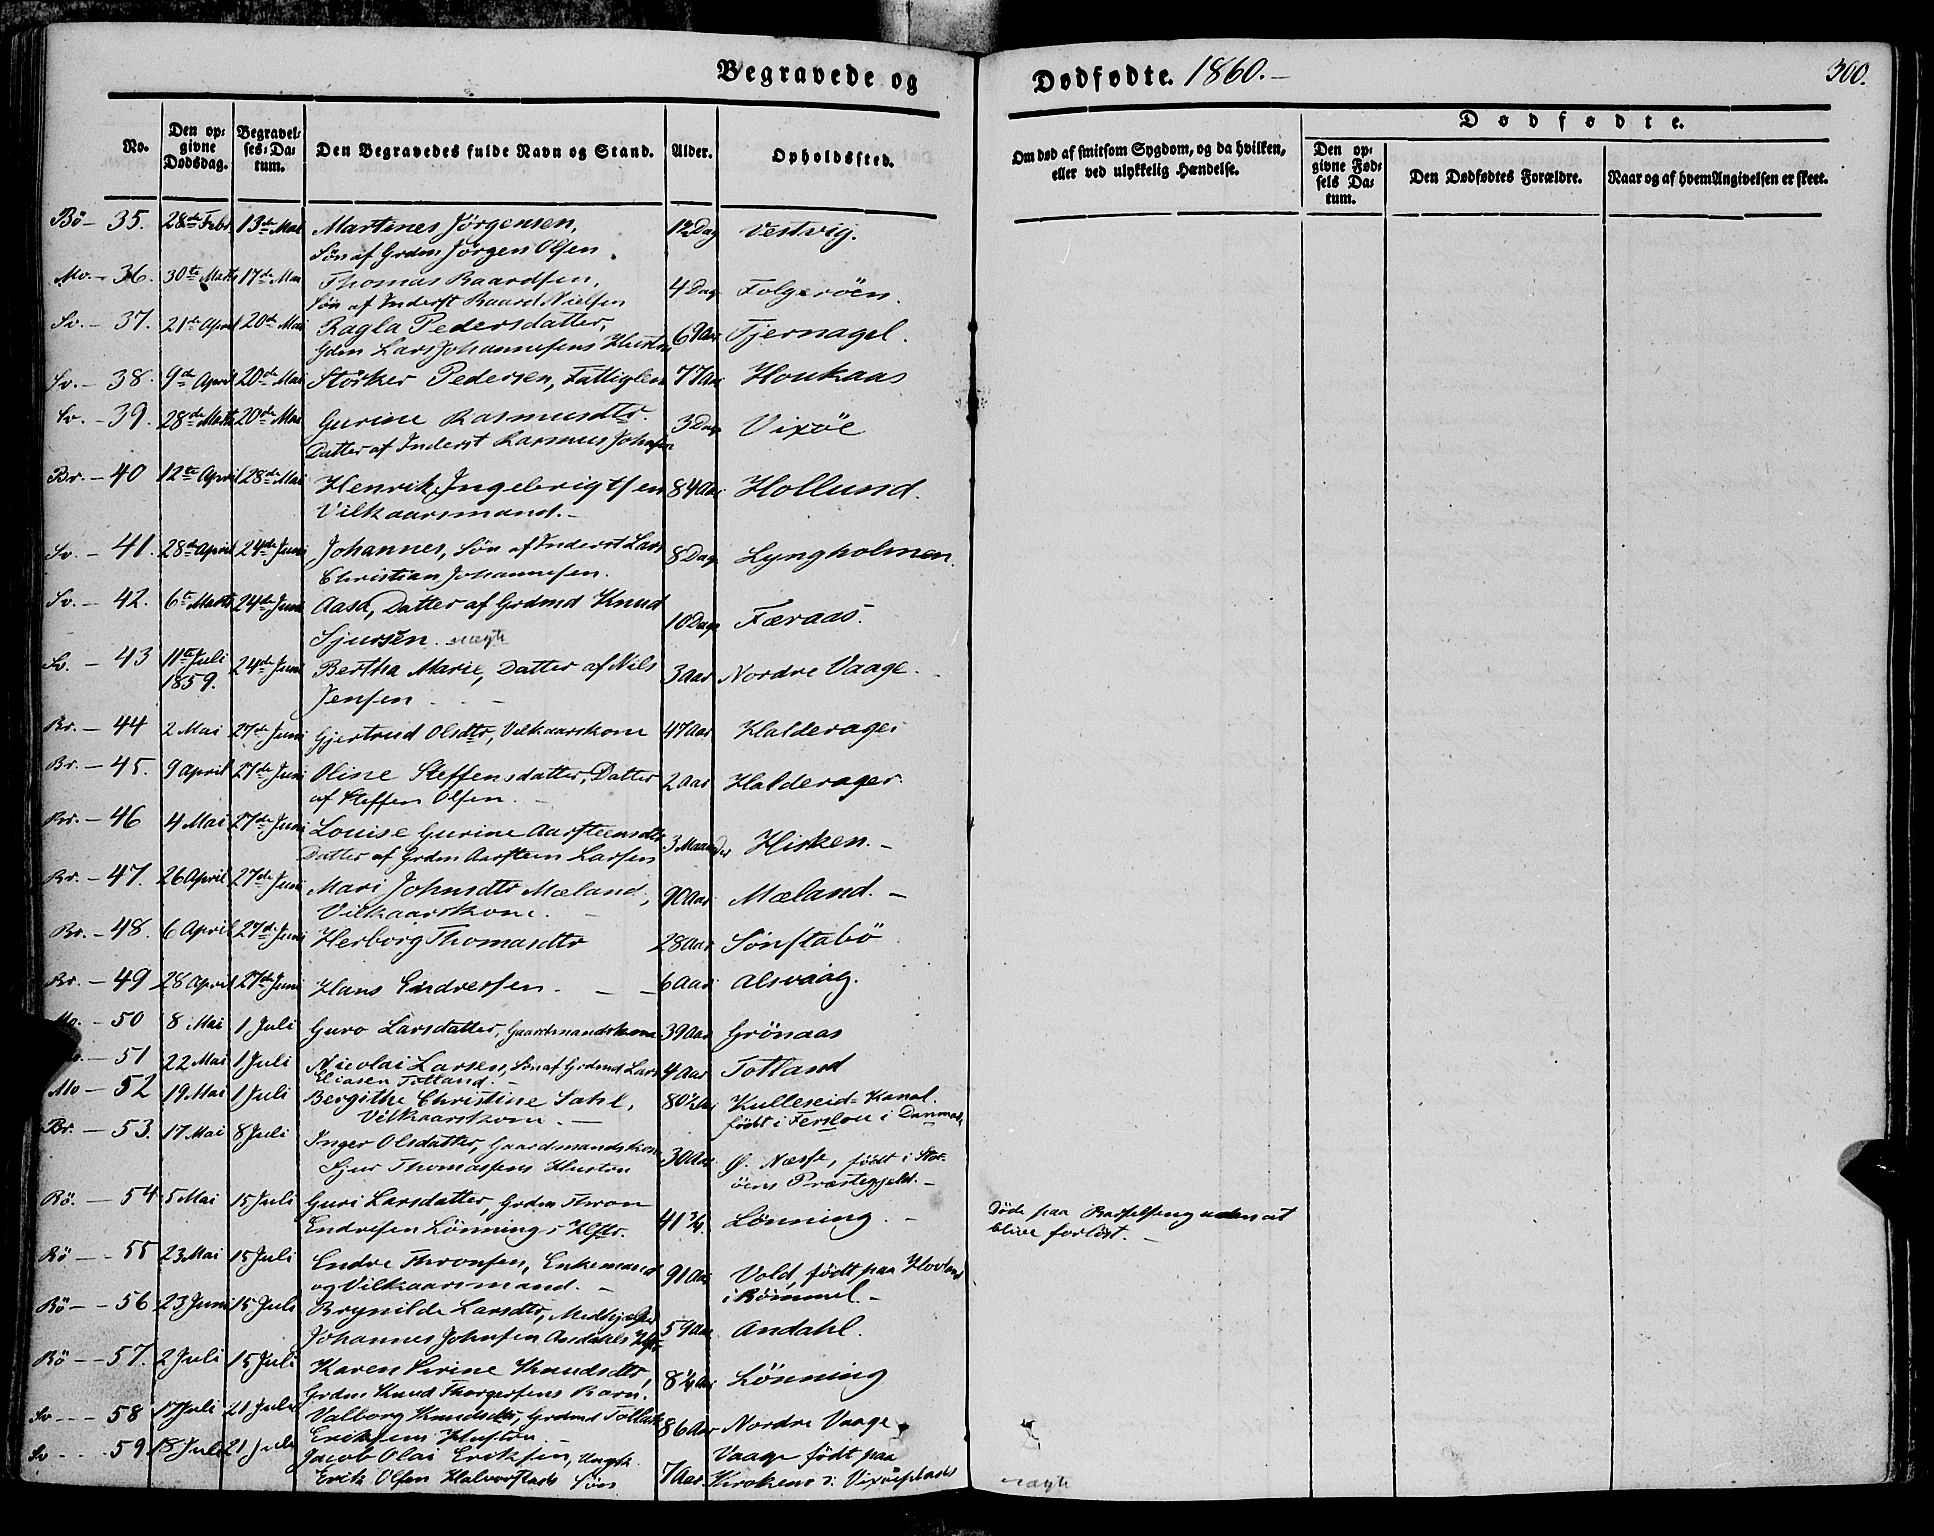 Begravede og
Dødfødte. 1860.—
300.
No.
Den op=
givne
Dødsdag.
Begravel=
ses=Da=
tum.
Den Begravedes fulde Navn og Stand.
Alder.
Opholdssted.
Om død af smitsom Sygdom, og da hvilken,
eller ved ulykkelig Hændelse.
Dødfødte.
Den op=
givne Fød=
sels Da=
tum.
Den Dødfødtes Forældre.
Naar og af hvem Angivelsen er skeet.
Bö — 35. 28de Febr 13de Mai Martines Jörgensen, 12 Dag Vestvig.
Søn af Grdm Jörgen Olsen.
Mo. — 36. 30te Marts 17de Mai Thomas Baardsen, 4 Dag Folgeröen.
Søn af Inderst Baard Nielsen
Sv. — 37. 21de April 20de Mai Ragla Pedersdatter, 69 Aar Tjernagel.
Gdm Lars Johannesens Hustru
Sv. — 38. 9de April 20de Mai Störker Pedersen, Fattiglem 77 Aar Houkaas
Sv. — 39. 28de Marts 20de Mai Gurine Rasmusdtr. 3 Dag Vixöe
Datter af Inderst Rasmus Johnsen
Br. — 40 12te April 28de Mai Henrik Ingebrigtsen 84 Aar Hollund.
Vilkaarsmand. —
Sv. — 41. 28de April 24de Juni Johannes, Søn af Inderst Lars 8 Dag Lyngholmen.
Christian Johannesen.
Sv. — 42. 6te Marts 24de Juni Aasa, Datter af Grdmd Knud 10 Dage Færaas.
Sjursen. uægte
Sv. — 43 11te Juli 24de Juni Bertha Marie, Datter af Nils 3 Aar Nordre Vaage.
1859. Jensen
Br. — 44 2 Mai 27de Juni Gjertrud Olsdtr, Vilkaarskone 47 Aar Halderager
Br. — 45. 9 April 27de Juni Oline Steffensdatter, Datter 2 Aar Halderager
af Steffen Olsen.
Br. — 46 4 Mai 27de Juni Louise Gurine Aarsteensdtr 3 Maaneder Hisken. —
Datter af Grdm Aarsteen Larsen
Br. — 47. 26 April 27de Juni Mari Johnsdtr Mæland, 90 Aar Mæland. —
Vilkaarskone.
Br. — 48. 6 April 27de Juni Herborg Thomasdtr 28 Aar Sönstabö
Br. — 49 28 April 27de Juni Hans Endresen. 6 Aar Alsvaag.
Mo. — 50 8 Mai 1 Juli Guro Larsdatter, Gaardmandskone 39 Aar Grönaas
— 51 22 Mai 1 Juli Nicolai Larsen, Søn af Grdmd Lars 4 Aar Totland
Eliasen Totland. —
Mo — 52 19 Mai 1 Juli Bergithe Christine Dahl, 80½ Aar Kulleseid=Kanal.
Vilkaarskone. — født i Ferslou i Danmark
Br. — 53. 17 Mai 8 Juli Inger Olsdatter, Gaardmandskone 30 Aar Ø. Næsse, født i Stor=
Sjur Thomassens Hustru öens Præstegjeld. —
Bö. — 54 5 Mai 15 Juli Guri Larsdatter, Grdm Thron 41 ¾ Lönning. — Døde paa Barselseng uden at
Endresen Lönning's Hstr. blive forløst. —
Bö — 55 23 Mai 15 Juli Endre Thronsen, Enkemand 91 Aar Vold, født paa Hovland
og Vilkaarsmand. — i Bömmel. —
Bö — 56 23 Juni 15 Juli Brynilde Larsdtr, Medhjælper 59 Aar Andahl.
Johannes Johnsen Aasdahls Hstr
Bö — 57. 2 Juli 15 Juli Karen Sirine Knudsdtr, 8½ Aar Lönning
Grdm Knud Thorgersens Barn.
Sv — 58 17 Juli 21 Juli Valborg Knudsdtr, Grdmd Tollak 86 Aar Nordre Vaage
Eriksens Hustru. —
Sv — 59 18 Juli 21 Juli Jacob Olai Eriksen, Uægte 7 Aar Vaage født paa
Erik Olsen Halvorstads Søn Krokene i Vixöepladse
uægte